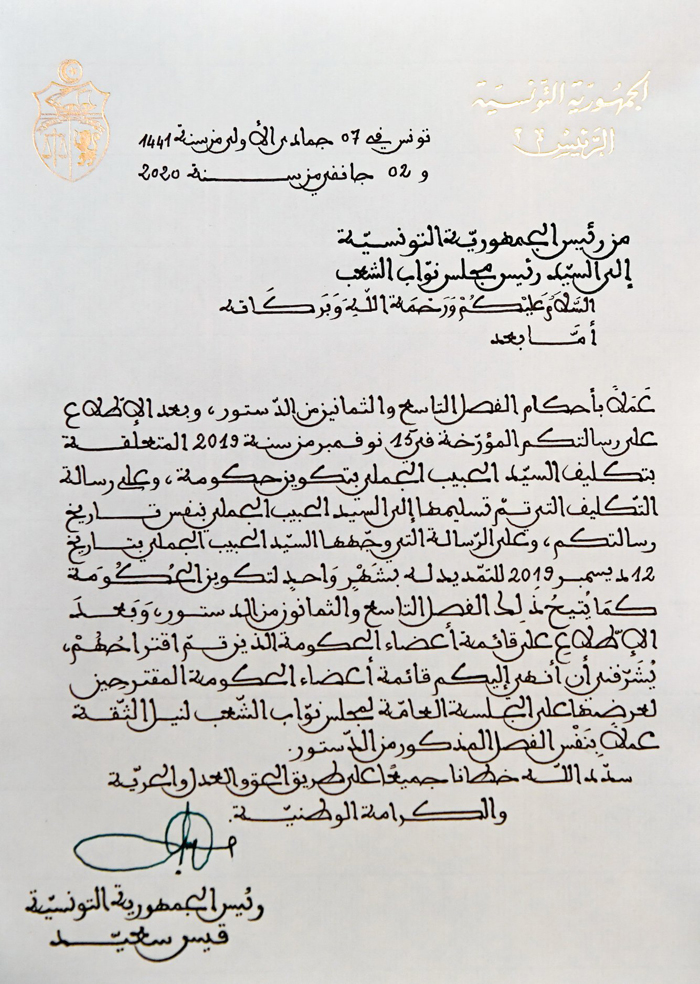 الجمهوريّة التّونسيّة
الرّئيس
تونس في 07 جمادى الأولى من سنة 1441
و 02 جانفي من سنة 2020
من رئيس الجمهوريّة التونسيّة
إلى السيّد رئيس مجلس نوّاب الشّعب
السَّلَامُ عَلَيْكُمْ وَرَحْمَةُ اللَّهِ وَبَرَكَاتُه
أمَّا بعد
عَمَلاً بأحكام الفصل التاسع والثمانين من الدّستور، وبعد الإطّلاع
على رسالتكم المؤرّخة في 15 نوفمبر من سنة 2019 المتعلّقة
بتكليف السيّد الحبيب الجملي بتكوين حكومة، وعلى رسالة
التّكليف التي تمّ تسليمها إلى السيد الحبيب الجملي بنفس تاريخ
رسالتكم، وعلى الرّسالة التي وجّهها السيّد الحبيب الجملي بتاريخ
12 ديسمبر 2019 للتّمديد له بِشَهْرٍ وَاحدٍ لتكوين الحُكُومَة
كمَا يُتيحُ ذَلِك الفصل التّاسع والثمانون من الدستور، وَبَعْدَ
الإطّلاع على قائمة أعضاء الحكومة الذين تمّ اقتراحُهُمْ،
يُشَرّفني أن أنهي إليكم قائمة أعضاء الحكومة المقترحين
لعرضها على الجلسة العامّة لمجلس نوّاب الشّعب لنيل الثّقة
عملاً بِنَفْسِ الفصل المذكور من الدّستور.
سدّد اللّه خطانا جميعًا على طريق الحقّ والعدل والحريّة
والكرامة الوطنيّة.
رئيس الجمهورية التونسيّة
قيس سعيّد